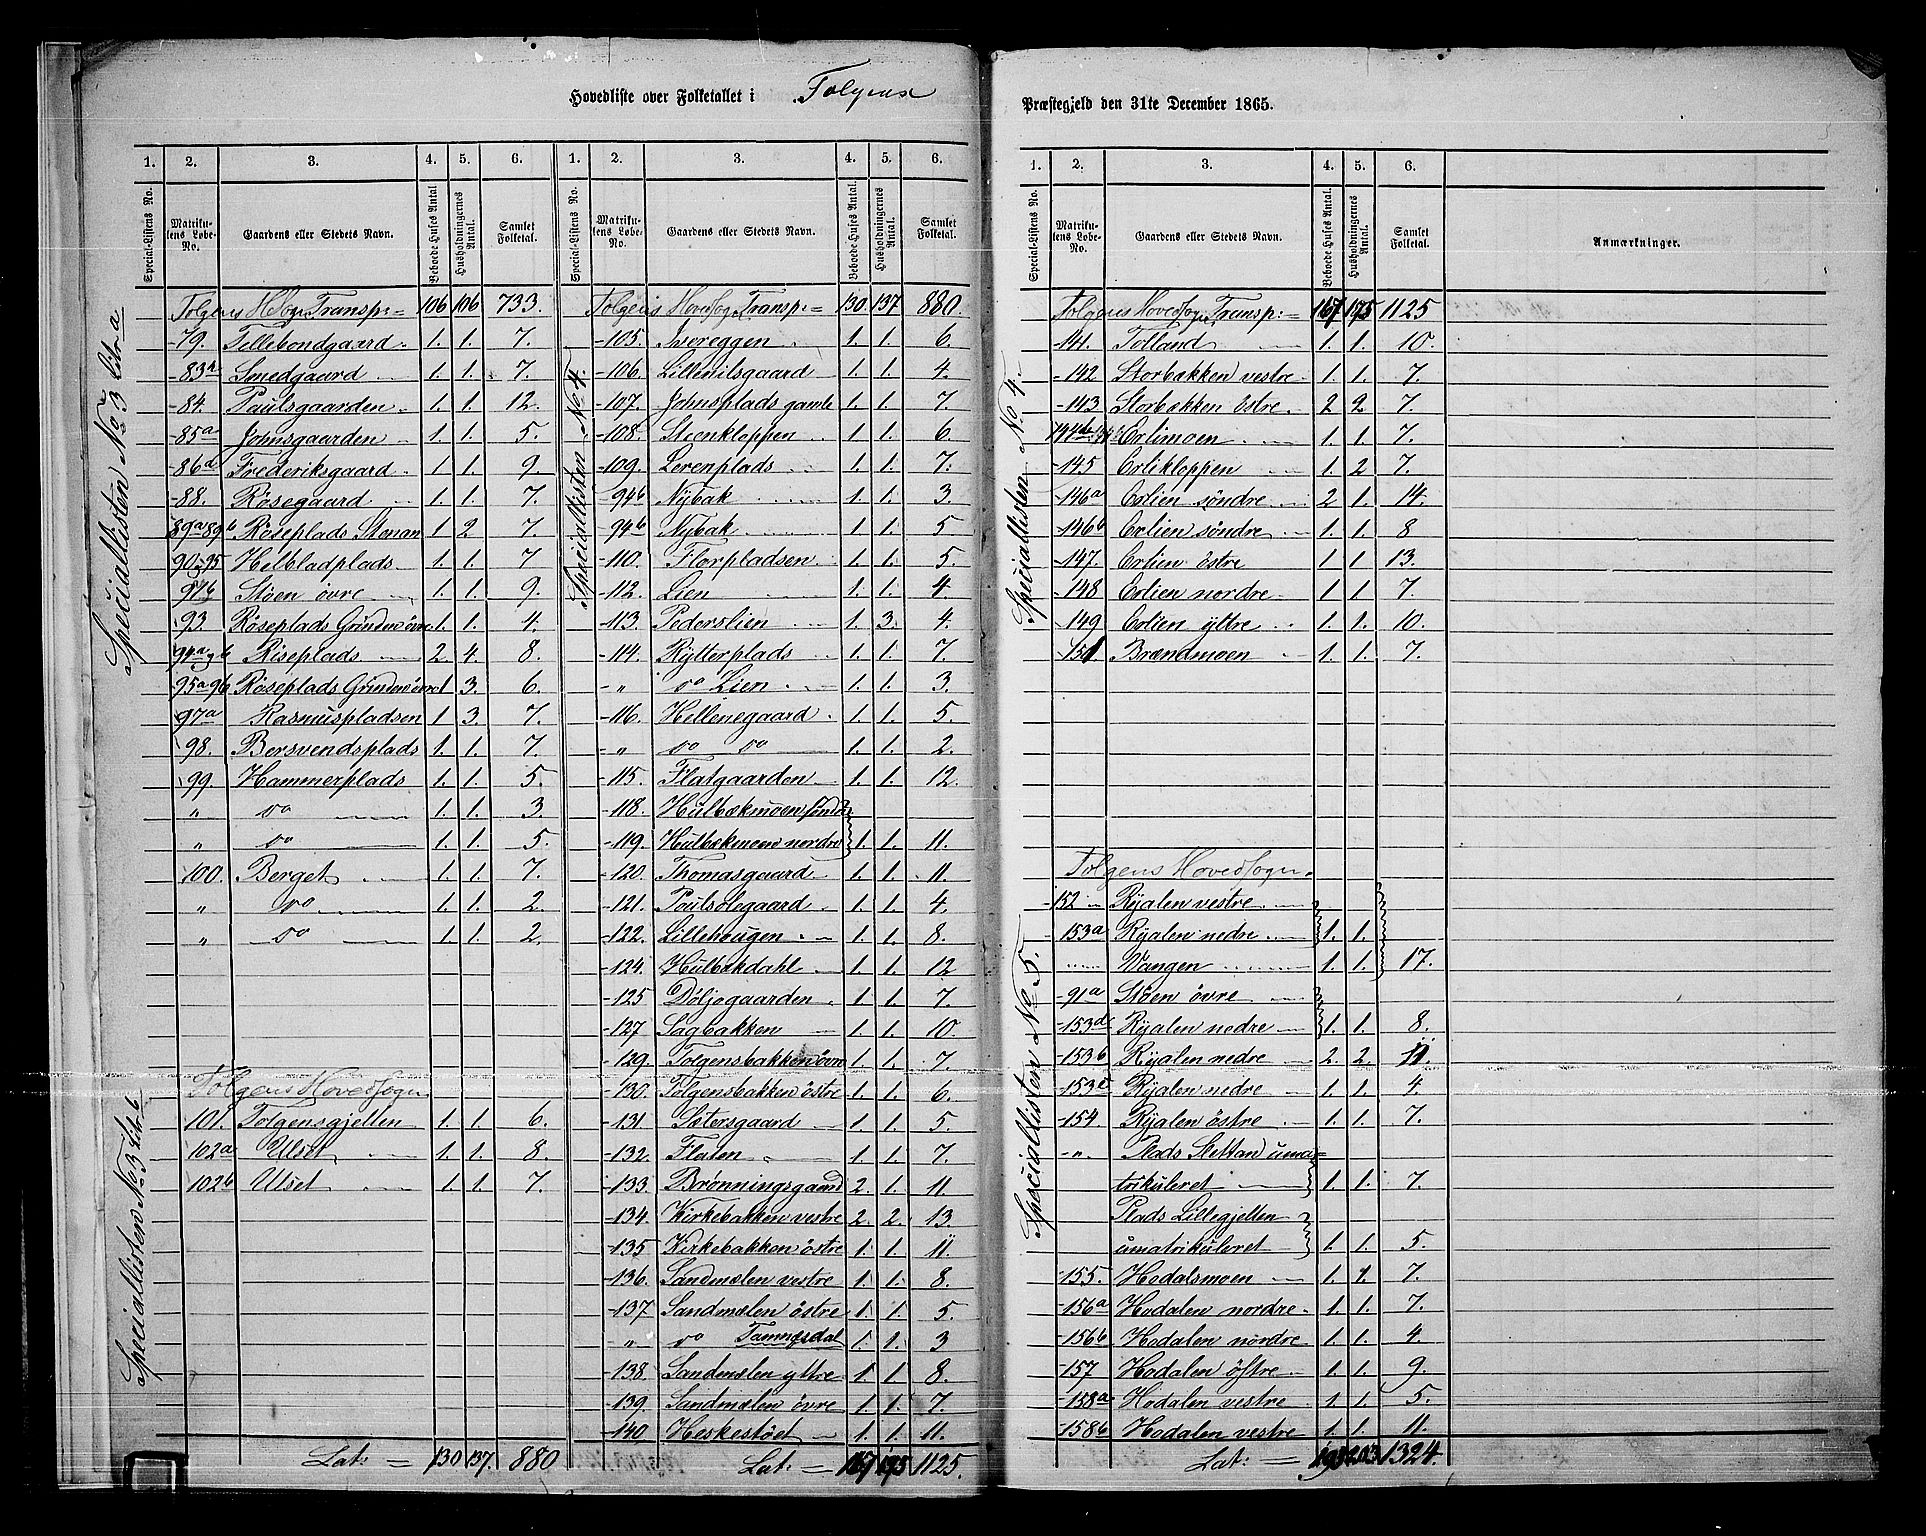 Hovedliste over Folketallet i Tolgens
Præstegjeld den 31te December 1865.
1. 2. 3. 4. 5. 6. 1. 2. 3. 4. 5. 6.
Special-Listens No. Matrikulens Løbe-No. Gaardens eller Stedets Navn. Beboede Huses Antal Husholdningernes Antal. Samlet Folketal. Special-Listens No. Matrikulens Løbe-No. Gaardens eller Stedets Navn. Beboede Huses Antal. Husholdningernes Antal. Samlet Folketal.
Speciallisten No 3 Litr a
Tolgens Hovs Transp:= 106 106 733.
79. Tillebondgaard 1. 1. 7.
83a Smedgaard 1. 1. 7.
84. Paulsgaarden 1. 1. 12.
85a Johnsgaarden 1. 1. 5.
86a Frederiksgaard 1. 1. 9.
88. Rösegaard 1. 1. 7.
89a 89b Röseplads Stenan 1 2 7.
90-95 Helbladplads 1. 1. 7
91b Støen övre 1. 1. 9.
93. Röseplads Grinden övre 1. 1. 4.
94a 96 Riseplads 2. 4. 8.
95a 96 Röseplads Grinden övre 1 3. 6.
97a Rasmuspladsen 1 3. 7.
98. Bersvendsplads 1. 1. 7.
99. Hammerplads 1. 1. 5.
" do 1. 1. 3.
" do 1. 1. 5.
100. Berget 1. 1. 7.
" do 1. 1. 2.
" do 1. 1. 2.
Speciallisten No 3 Litr b
Tolgens Hovedsogn
101. Tolgensgjellen 1. 1. 6.
102a Ulset 1. 1. 8.
102b Ulset 1. 1. 7.
Lat: = 130 137. 880
Speciallisten No 4.
Tolgens Hovedsogn Transp:= 130 137 880.
105. Ivereggen 1. 1. 6.
106. Lillenilsgaard 1. 1. 4.
107. Johnsplads gamle 1. 1. 7.
108. Steenkloppen 1. 1. 6.
109. Lerenplads 1. 1. 7.
94b Nybak 1. 1. 3.
94b Nybak 1. 1. 5
110. Florpladsen 1. 1. 5.
112. Lien 1. 1. 4.
113. Pederslien 1. 3. 4.
114. Rytterplads 1. 1. 7.
" do Lien 1. 1. 3.
116. Hellenegaard 1. 1. 5.
" do do 1. 1. 2.
115. Flatgaarden 1. 1. 12.
118. Hulbækmoen söndre
119. Hulbækmoen nordre 1. 1. 11.
120. Thomasgaard 1. 1. 11.
121. Paulsolegaard 1. 1. 4.
122. Lillehougen 1. 1. 8.
124. Hulbækdahl 1. 1. 12
125 Döljegaarden 1. 1. 7.
127 Sagbakken 1. 1. 10.
129. Tolgensbakken övre 1. 1. 7.
130. Tolgensbakken östre 1. 1. 6.
131 Istersgaard 1. 1. 5.
132. Flaten 1. 1. 7.
133. Brønningsgaard 2. 1. 11.
134. Kirkebakken vestre 2. 2. 13.
135 Kirkebakken östre 1. 1. 11.
136. Sandmælen vestre 1. 1. 8.
137 Sandmælen östre 1. 1. 5
" do Tamnesdal 1. 1. 3
138. Sandmælen yttre 1 1 8.
139. Sandmælen övre 1. 1. 7.
140. Heskestöet 1. 1. 11.
Lat: = 167 175 1125.
1. 2. 3. 4. 5. 6.
Special-Listens No. Matrikulens Løbe-No. Gaardens eller Stedets Navn. Beboede Huses Antal. Husholdningernes Antal. Samlet Folketal. Anmærkninger.
Speciallisten No 4.
Tolgens Hovedsogn Transp:= 167 175 1125
141. Tolland 1. 1. 10.
142 Storbakken vestre 1. 1. 7.
143 Storbakken östre 2 2 7.
Erlimoen 1. 1. 7.
145 Erlikloppen 1. 2 7.
146a Erlien söndre 2 1. 14.
146b Erlien söndre 1. 1. 8
147. Erlien östre 1 1. 13.
148 Erlien nordre 1 1 7.
149 Erlien yttre 1. 1. 10.
151. Brændmoen 1. 1. 7.
Speciallisten No 5.
Tolgens Hovedsogn
152 Ryalen vestre
153a Ryalen nedre 1. 1.
Vangen 1. 1. 17.
91a Støen övre
153d Ryalen nedre 1. 1. 8.
153b Ryalen nedre 2. 2. 11.
153c Ryalen nedre 1. 1. 4.
154 Ryalen östre 1. 1. 7.
" Plads Slettan uma-
trikuleret 1. 1. 7.
Plads Lillegjellen
umatrikuleret 1. 1. 5.
155. Hodalsmoen 1. 1. 7.
156a Hodalen nordre 1. 1. 7.
156b Hodalen nordre 1. 1. 4.
157 Hodalen östre 1. 1. 9.
158a Hodalen vestre 1. 1. 5.
158b Hodalen vestre 1. 1. 11.
Lat: = 193 203 1324.